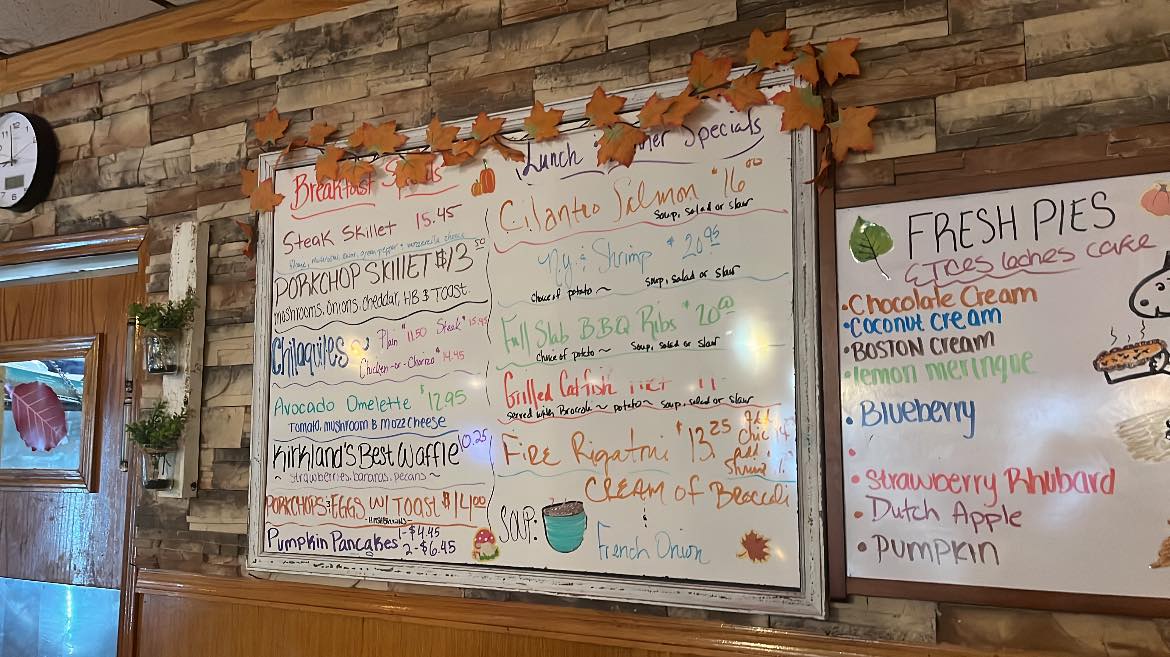 Breakfast
Steak Skillet 15.45
PORKCHOP SKILLET $13.50
mushrooms, onions, cheddar, HB & TOAST.
Chilaquiles ~ Plain $11.50 Steak $15.45
Chicken -or- Chorizo $14.45
Avocado Omelette $12.95
Tomato, mushroom & Mozz Cheese
Kirkland's Best Waffle 10.25
~ strawberries, bananas, pecans ~
PORKCHOPS & EGGS W/ TOAST $14.00
Pumpkin Pancakes 1-$4.45
2-$6.45
Lunch Specials
Cilantro Salmon $16.00
Soup, salad or slaw
Ny & Shrimp $20.95
choice of potato ~ soup, salad or slaw
Full Slab BBQ Ribs $20.00
choice of potato ~ soup, salad or slaw
Grilled Catfish
served with Broccoli ~ potato ~ soup, salad or slaw
Fire Rigatoni $13.25
add
shrimp
SOUP: CREAM of Broccoli
French Onion
FRESH PIES
& Tres Leches cake
• Chocolate Cream
• Coconut cream
• BOSTON CREAM
• lemon meringue
• Blueberry
• Strawberry Rhubard
• Dutch Apple
• PUMPKIN